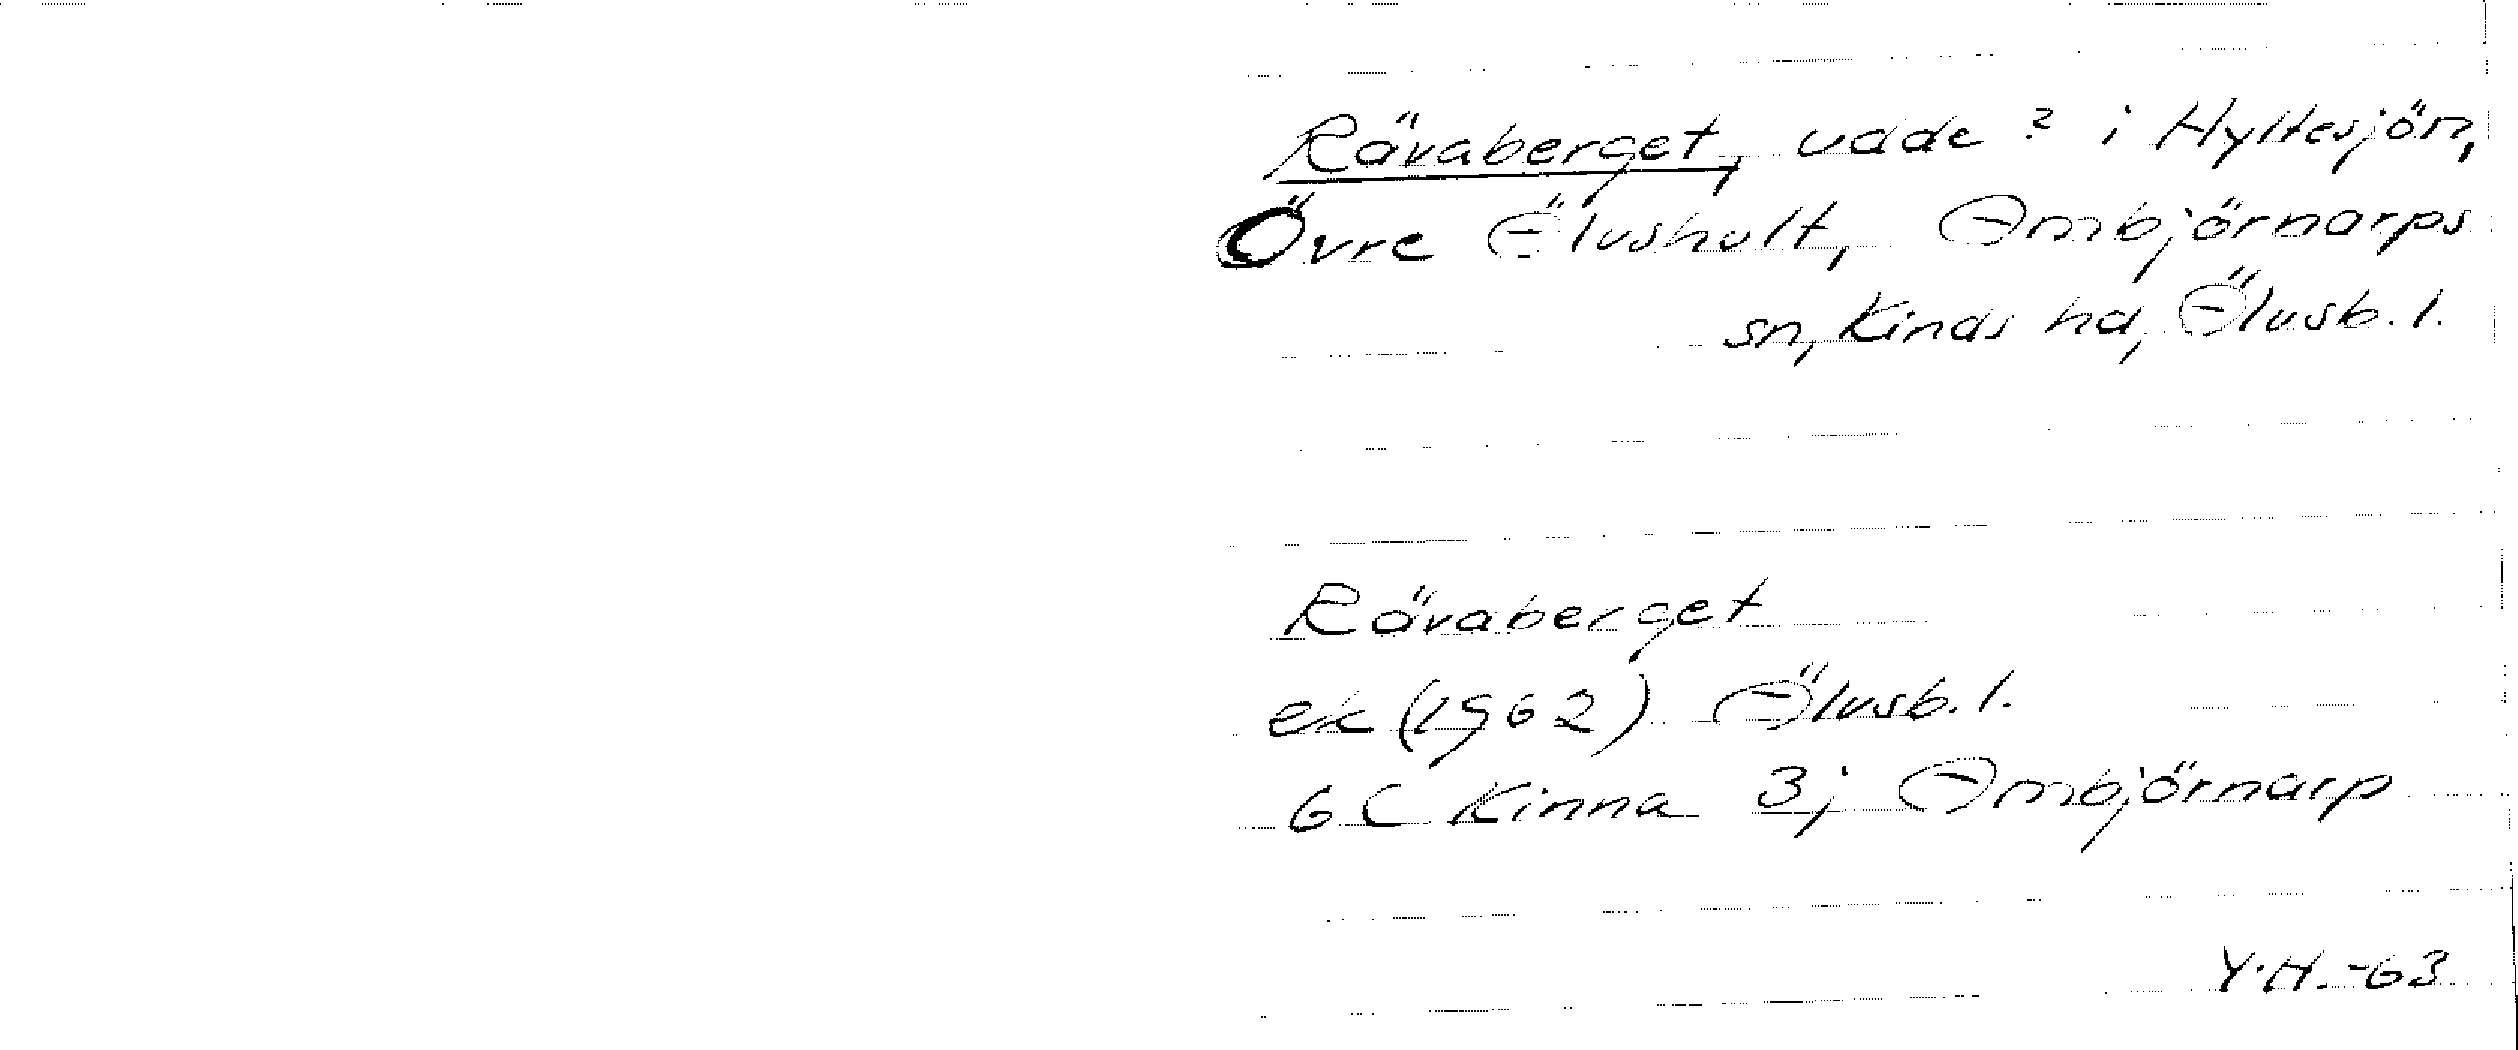 Rävaberget, udde? i Hyltesjön,
Övre Älvshult, Ambjörnarps
sn, Kinds hd, Älvsb. l.
Rävaberget
ek (1962) Älvsb. l.
6 C Kinna 3j Ambjörnarp
Y.H. -63